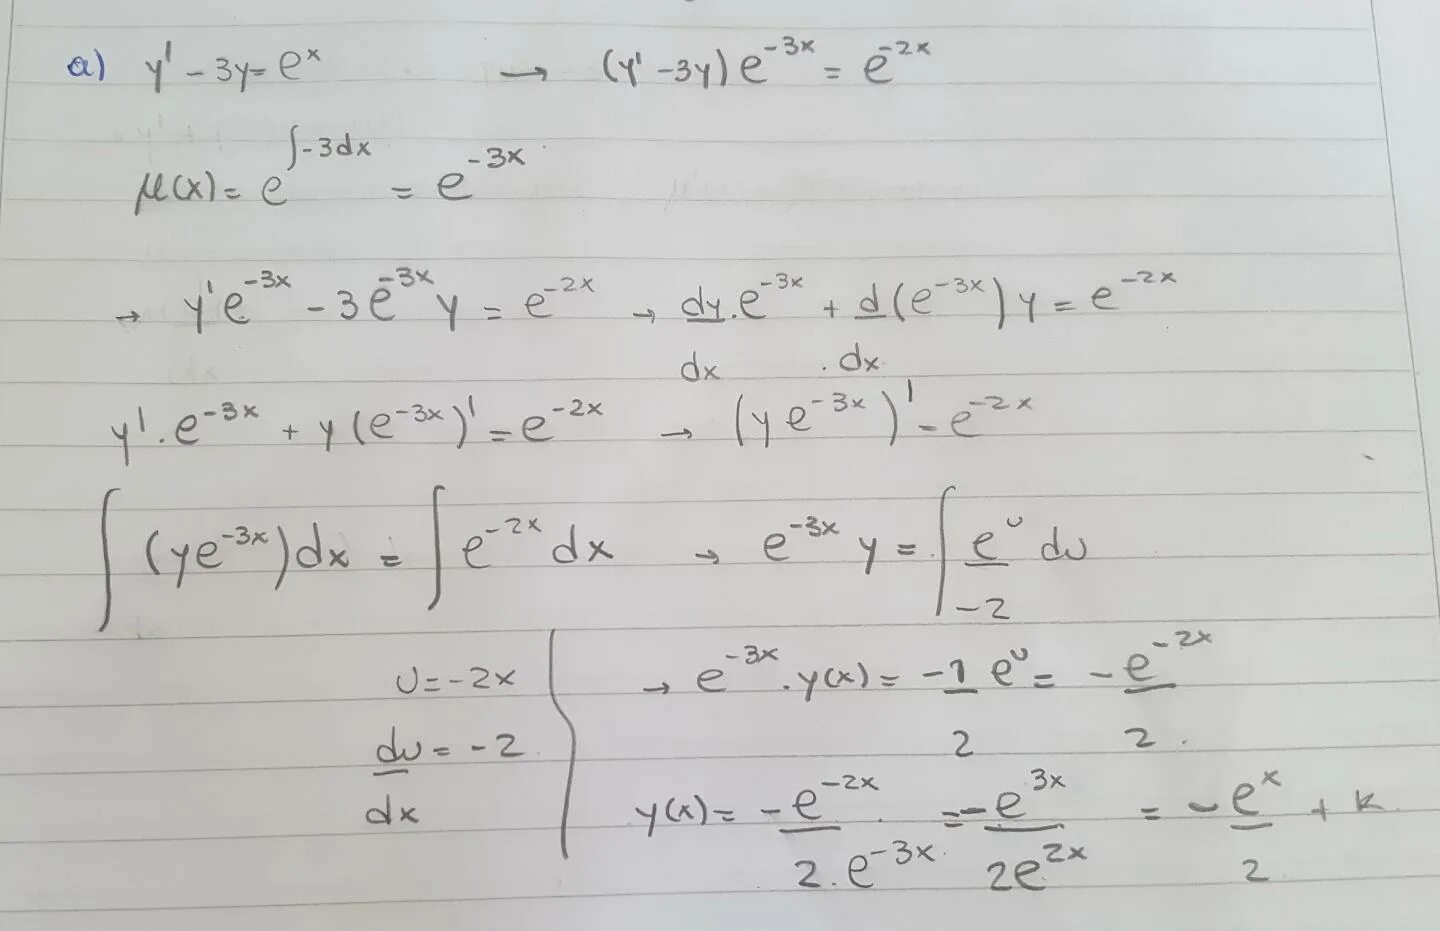 a) y' - 3y = e^x → (y' - 3y) e^{-3x} = e^{-2x}
μ(x) = e^{∫-3dx} = e^{-3x}
→ y'e^{-3x} - 3e^{-3x}y = e^{-2x} → dy/dx . e^{-3x} + d/dx (e^{-3x}) y = e^{-2x}
y' . e^{-3x} + y(e^{-3x})' = e^{-2x} → (ye^{-3x})' - e^{-2x}
∫(ye^{-3x})dx = ∫e^{-2x} dx → e^{-3x} y = ∫ e^u/-2 du
u = -2x
du/dx = -2
→ e^{-3x} . y(x) = -1/2 e^u = - e^{-2x}/2 .
y(x) = - e^{-2x}/2.e^{-3x} = - e^{3x}/2e^{2x} = - e^x/2 + k